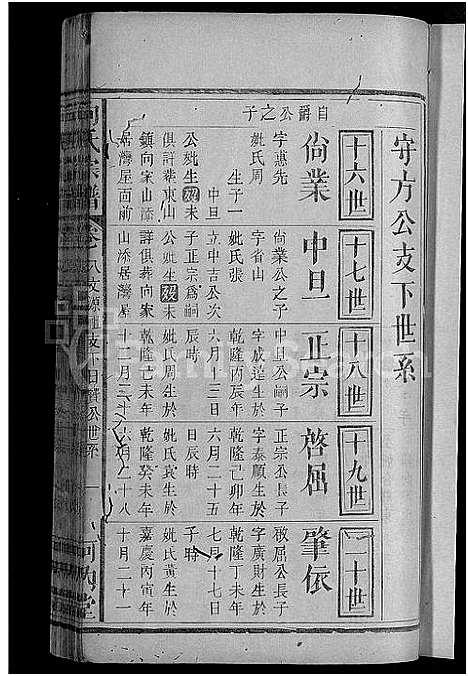 守方公支下世系
十六世
自爵公之子
尙業
字蕙先
妣氏周
生子一
中旦
公妣生歿未
俱許葬東山
鎮向家山添
居灣屋面前
十七世
中旦
尙業公之子
字省山
妣氏張
立中吉公次
子正宗爲嗣
公妣生歿未
詳俱葬向家
山添居灣屋
十八世
正宗
中旦公嗣子
字成達生於
乾隆丙辰年
六月十三日
辰時
妣氏周生於
乾隆己未年
十二月三十
十九世
啓屈
正宗公長子
字泰順生於
乾隆己卯年
六月二十五
日辰時
妣氏袁生於
乾隆癸未年
六月二十八
二十世
肇依
啓屈公長子
字廣財生於
乾隆丁未年
七月十七日
子時
妣氏黃生於
嘉慶丙寅年
十月二十一
氏宗譜
卷八